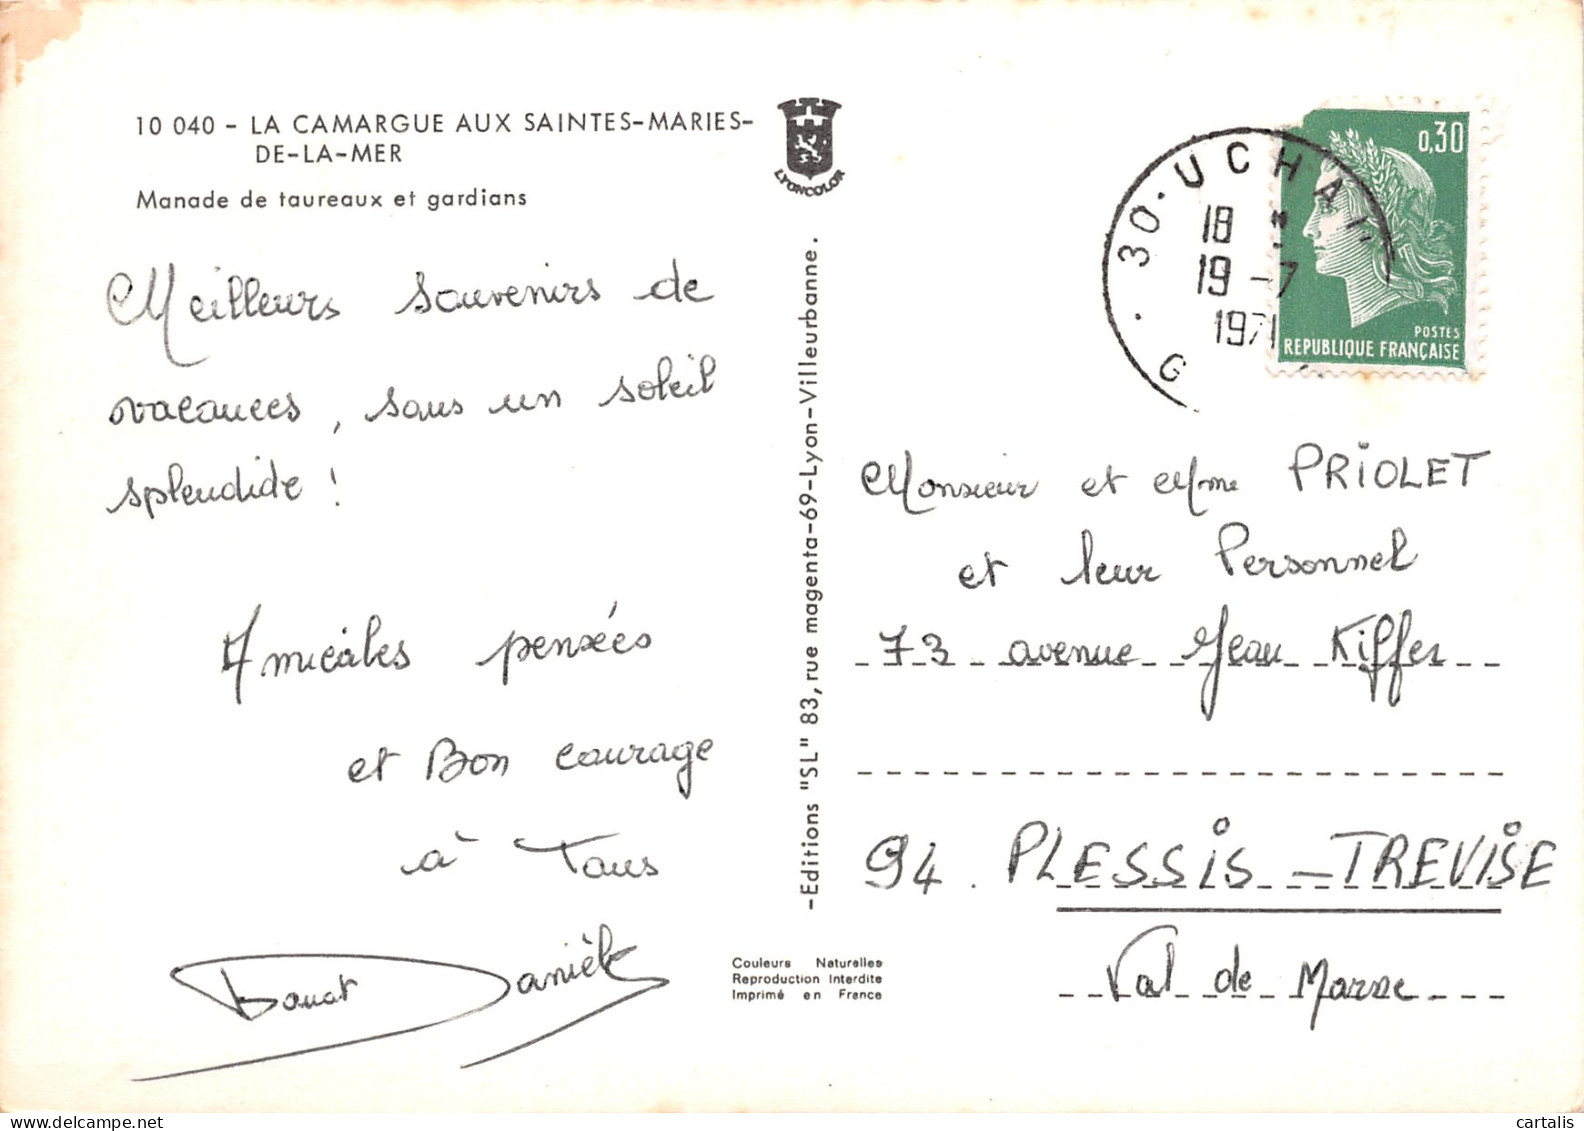 10 040 - LA CAMARGUE AUX SAINTES-MARIES-
DE-LA-MER
Manade de taureaux et gardians
LYONCOLOR
Meilleurs souvenirs de
vacances, sous un soleil
splendide !
Amicales pensées
et Bon courage
à Tous
Danièle
-Editions "SL" 83, rue magenta-69-Lyon-Villeurbanne.
Couleurs Naturelles
Reproduction Interdite
Imprimé en France
30-UCHAU
18
19-7
1971
G
0,30
POSTES
REPUBLIQUE FRANÇAISE
Monsieur et Mme PRIOLET
et leur Personnel
73 avenue Jean Kiffer
94. PLESSIS-TREVISE
Val de Marne
delcampe.net
cartalis